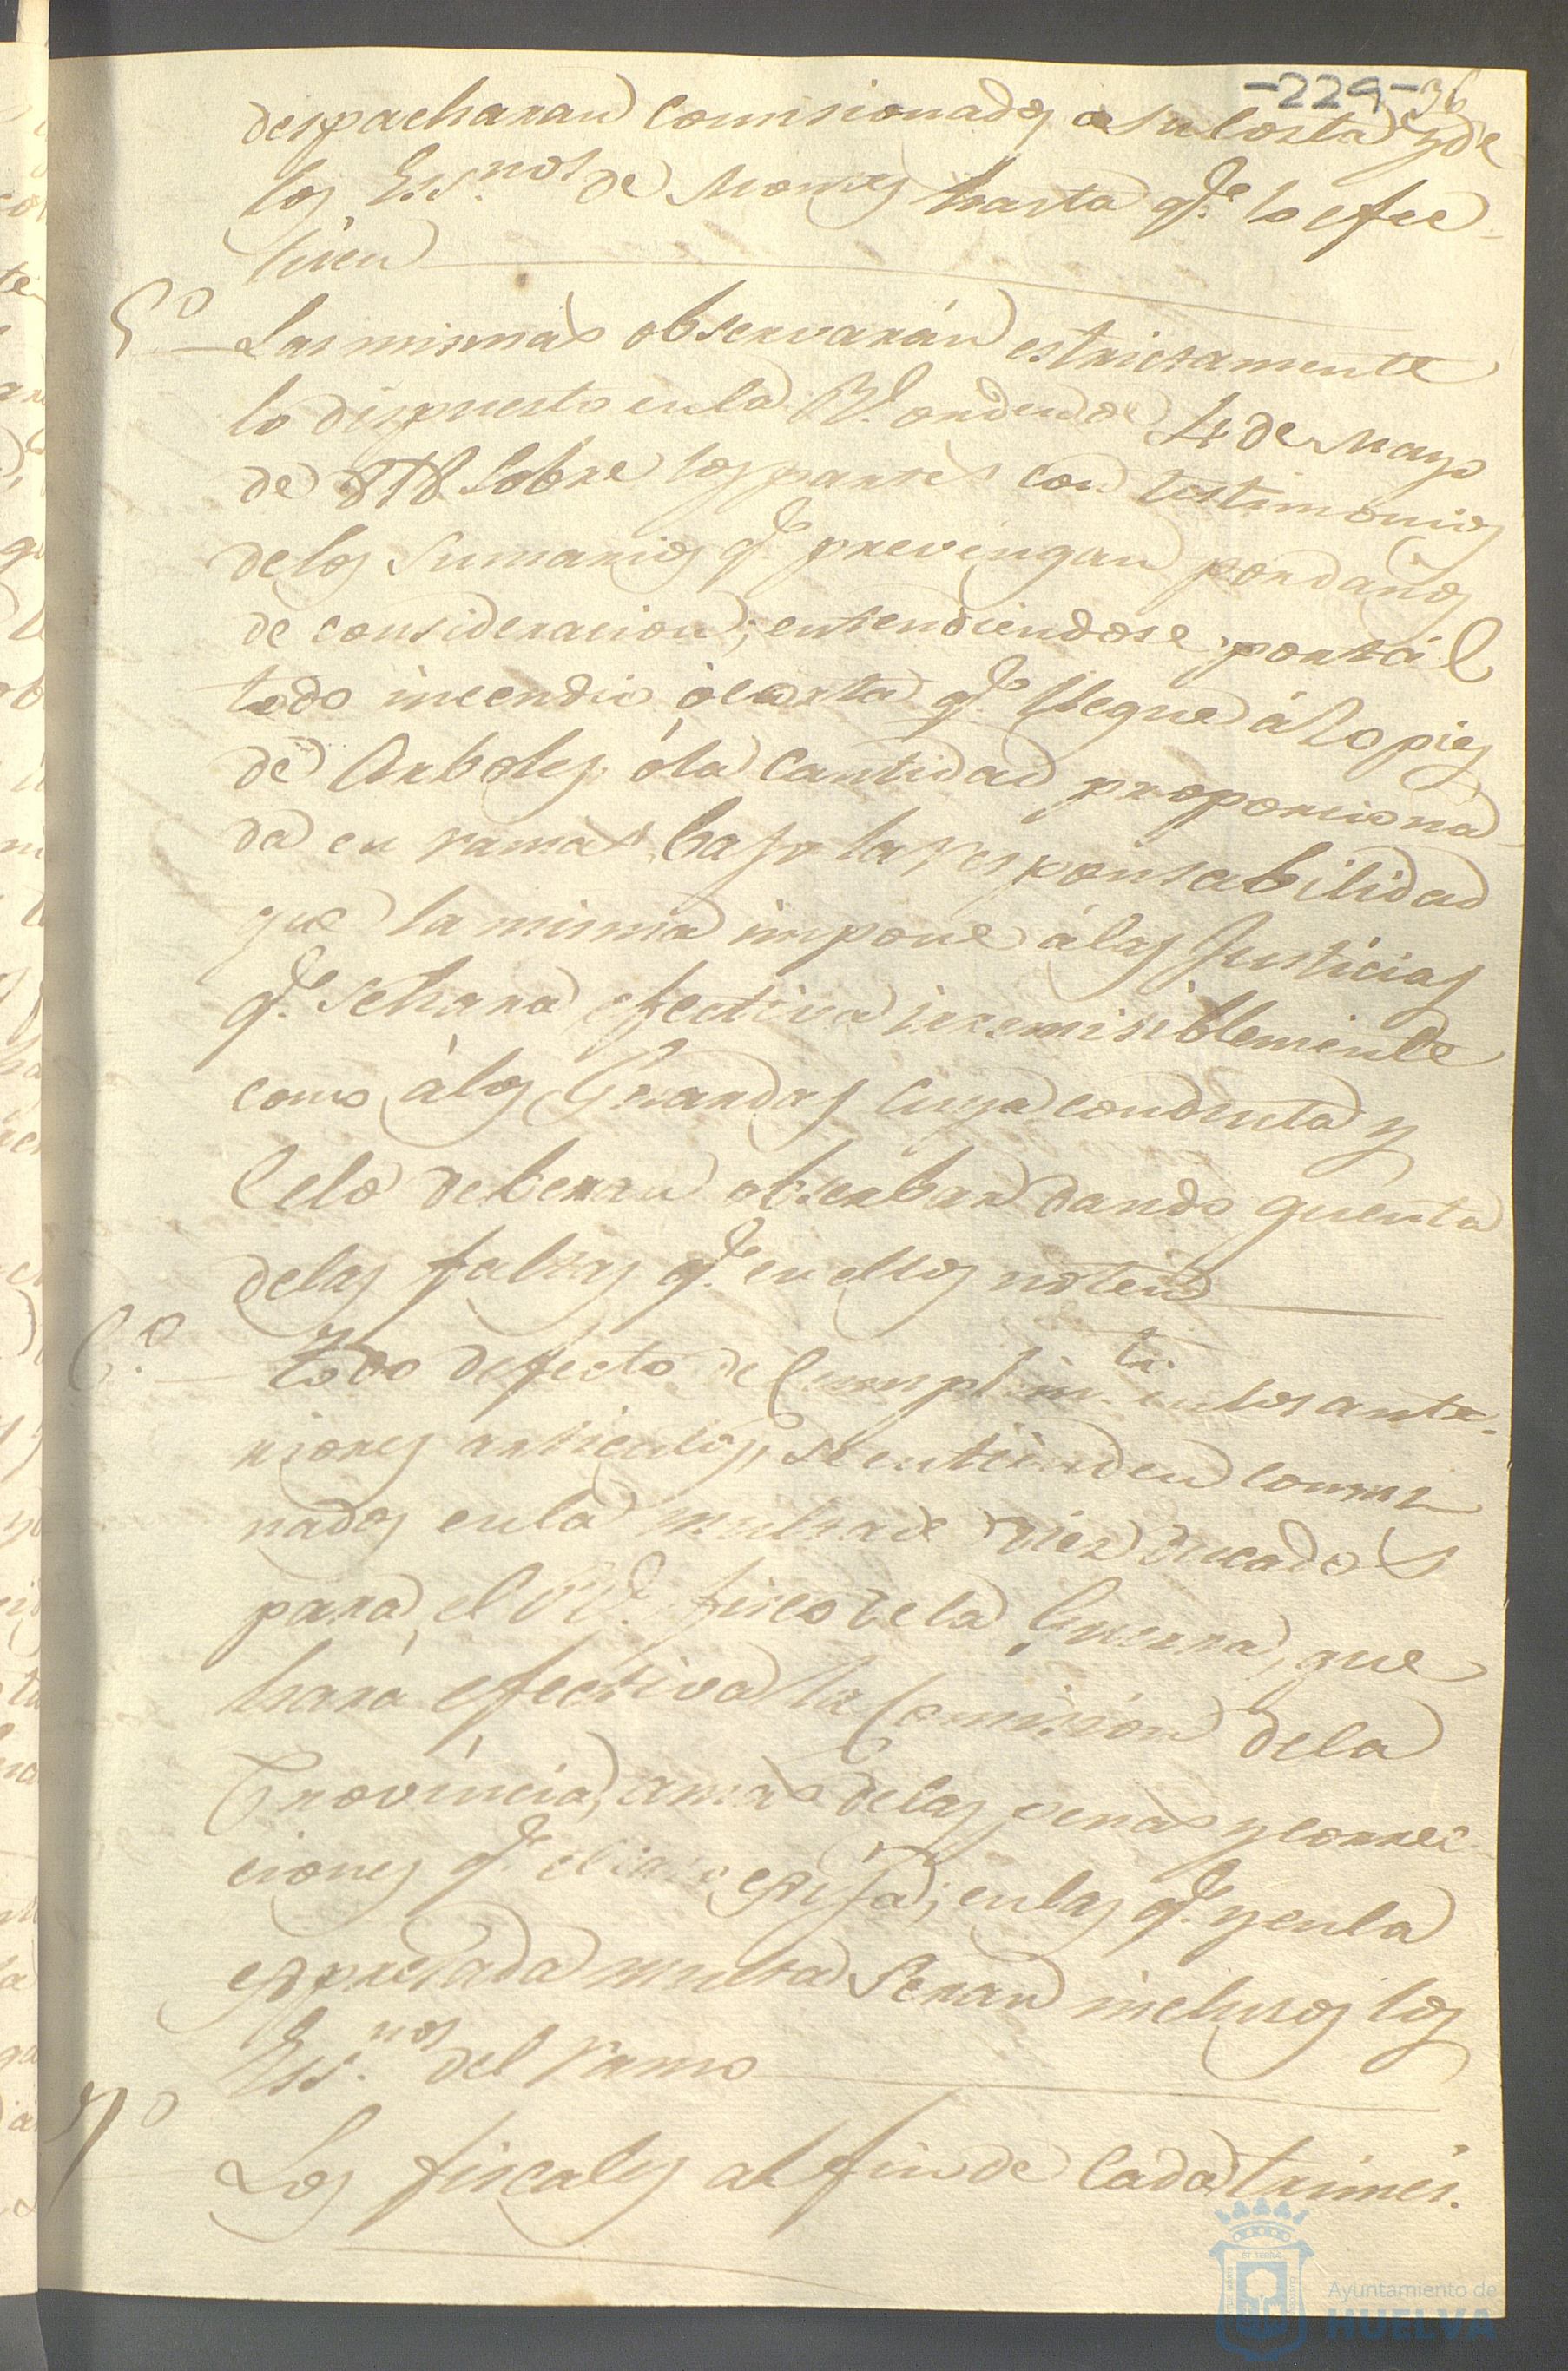 -229- 36
despacharan comisionados a su costa y de
los Ess.nos de Montes hasta q.e lo efec-
tuen
5.o Las mismas observarán estrictamente
lo dispuesto en la Rl. orden de 4 de Mayo
de 818 sobre los partes con testimonios
de los Sumarios q.e prevengan por daños
de consideracion; entendiendose por tál
todo incendio, ó corta q.e llegue á 20 pies
de Arboles, ó la cantidad proporciona-
da en ramas, bajo la responsabilidad
que la misma impone á las Justicias
q.e se hara efectiva irremisiblemente
como á los Guardas cuya conducta y
Celo deberan obserbar dando quenta
de las faltas q.e en ellos noten
6.o todo defecto de Cumplim.to en los ante-
riores articulos, se entienden conmi
nados en la multa de diez ducados
para el Rl. fisco de la Guerra, que
hará efectiva la Comisión de la
Provincia, amas de las penas y correc-
ciones q.e el caso exija; en las q.e y en la
expresada multa Seran inclusos los
Ess.nos del ramo
7.o Los fiscales al fin de Cada trimes.
Ayuntamiento de
HUELVA